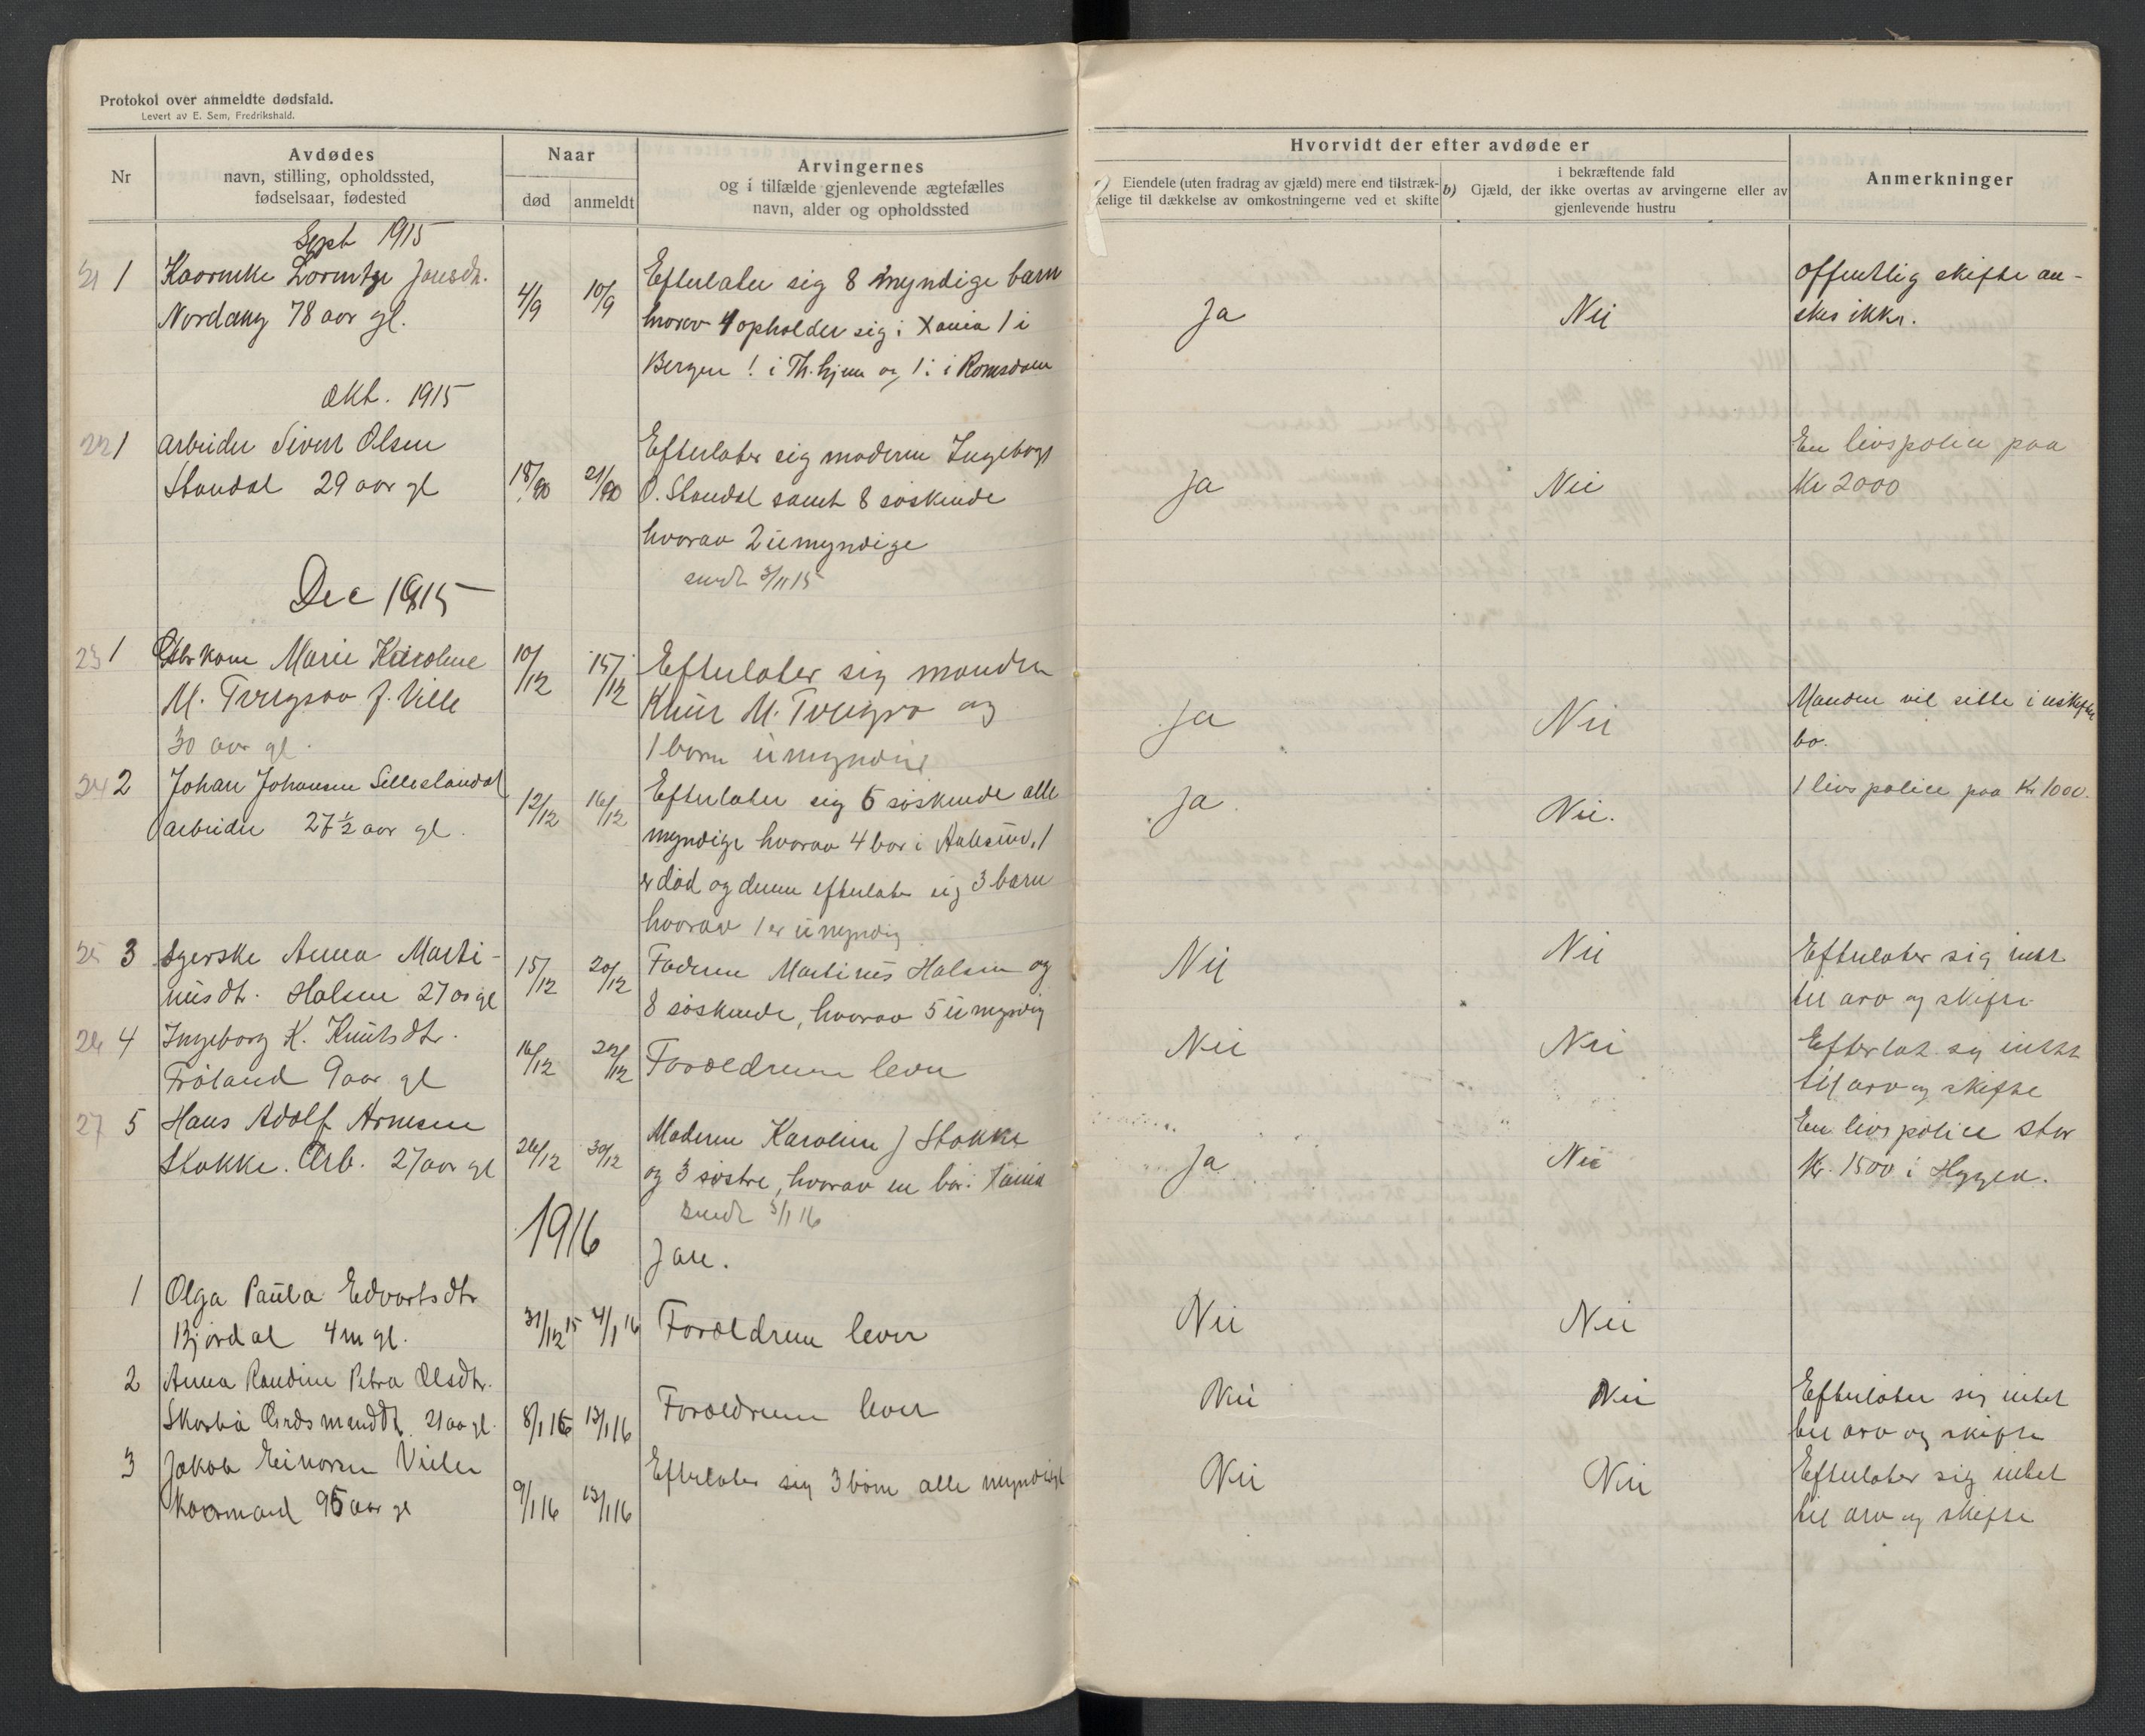 Protokol over anmeldte dødsfald.
Levert av E. Sem, Fredrikshald.
Nr
Avdødes
navn, stilling, opholdssted,
fødselsaar, fødested
Naar
død
anmeldt
Arvingernes
og i tilfælde gjenlevende ægtefælles
navn, alder og opholdssted
Hvorvidt der efter avdøde er
Eiendele (uten fradrag av gjæld) mere end tilstræk-
kelige til dækkelse av omkostningerne ved et skifte
b) i bekræftende fald
Gjæld, der ikke overtas av arvingerne eller av
gjenlevende hustru
Anmerkninger
Sept 1915
21 1 Jonsdr.
Nordang 78 aar gl.
4/9
10/9
Efterlater sig 8 myndige barn
hvorav 4 opholder sig i Xania 1 i
Bergen 1 i Th.hjem og 1 i Romsdalen
Ja
Nei
Offentlig skifte øn-
skes ikke.
Okt. 1915
22 1 Arbeider Sivert Olsen
Standal 29 aar gl
18/10
21/10
Efterlater sig moderen Ingeborg
O. Standal samt 8 søskende
hvorav 2 umyndige
sendt 3/11 15
Ja
Nei
En livspolice paa
Kr 2000
Dec 1915
23 1 Marie Karoline
M. f. Ville
30 aar gl.
10/12
15/12
Efterlater sig manden
M. og
1 barn umyndig
Ja
Nei
Manden vil sitte i uskiftet
bo.
24 2 Johan Johansen
arbeider 27½ aar gl.
12/12
16/12
Efterlater sig 6 søskende alle
myndige hvorav 4 bor i Aalesund, 1
er død og denne efterlater sig 3 barn
hvorav 1 er umyndig
Ja
Nei.
1 livspolice paa Kr 1000.
25 3 Syerske Anna Marti-
nusdtr. Halsen 27 aar gl
15/12
20/12
Faderen Martinus Halsen og
8 søskende, hvorav 5 umyndig
Nei
Nei
Efterlater sig intet
til arv og skifte
26 4 Ingeborg K. Knutsdtr.
Frøland 9 aar gl
16/12
22/12
Forældrene lever
Nei
Nei
Efterlat sig intet
til arv og skifte
27 5 Hans Adolf Arnesen
Stokke. Arb. 27 aar gl
26/12
30/12
Moderen Karoline J Stokke
og 3 søstre, hvorav en bor i Xania
sendt 3/1 16
Ja
Nei
En livspolice stor
Kr. 1500 i Hygea.
1916
Jan.
1 Olga Paula Edvartsdtr
Bjørdal 4 m gl.
31/12 15
4/1 16
Forældrene lever
Nei
Nei
2 Anna Randine Petra Olsdtr.
21 aar gl.
8/1 16
13/1 16
Forældrene lever
Nei
Nei
Efterlater sig intet
til arv og skifte
3 Jakob Einarsen
Kaarmand 95 aar gl
9/1 16
13/1 16
Efterlater sig 3 børn alle myndige
Nei
Nei
Efterlater sig intet
til arv og skifte